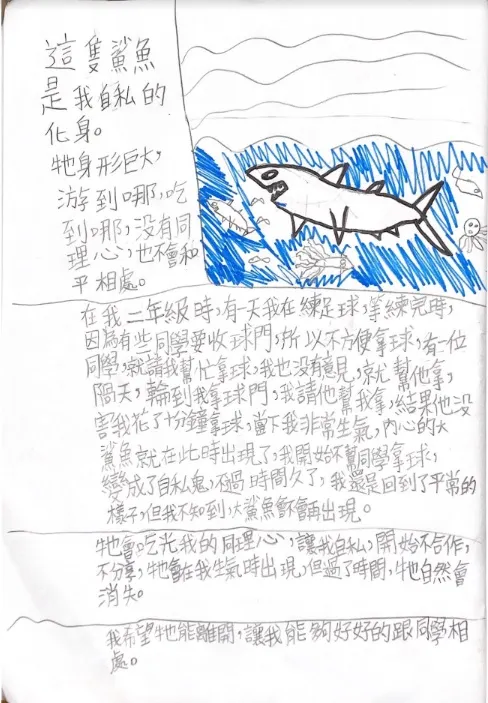 這隻鯊魚
是我自私的
化身。
牠身形巨大,
游到哪,吃
到哪,没有同
理心,也不會和
平相處。
在我二年級時,有一天我在練足球,等練完時,
因為有些同學要收球門,所以不方便拿球,有一位
同學,就請我幫忙拿球,我也没有意見,就幫他拿,
隔天,輪到我拿球門,我請他幫我拿,結果他没
害我花了十分鐘拿球,當下我非常生氣,內心的大
鯊魚就在此時出現了,我開始不幫同學拿球,
變成了自私鬼,不過時間久了,我還是回到了平常的
樣子,但我不知到,大鯊魚會不會再出現。
牠會吃光我的同理心,讓我自私,開始不合作,
不分享,牠會在我生氣時出現,但過了時間,牠自然會
消失。
我希望牠能離開,讓我能夠好好的跟同學相
處。